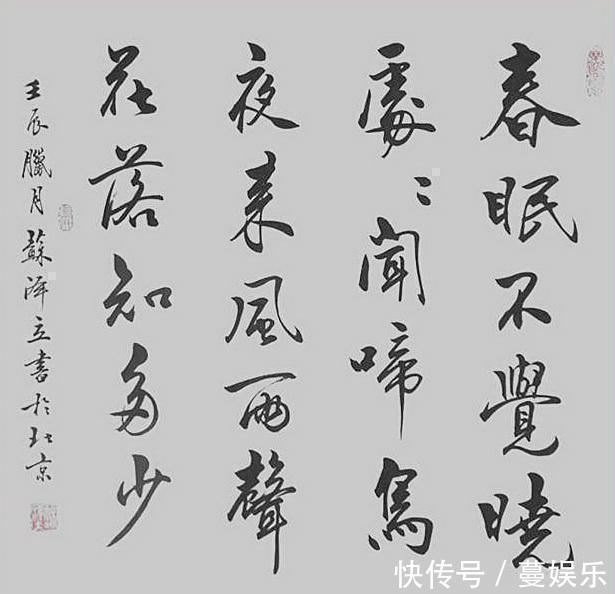 春眠不覺曉
處〻聞啼鳥
夜来風雨聲
花落知多少
壬辰臘月蘇澤立書於北京
快传号/蔓娱乐